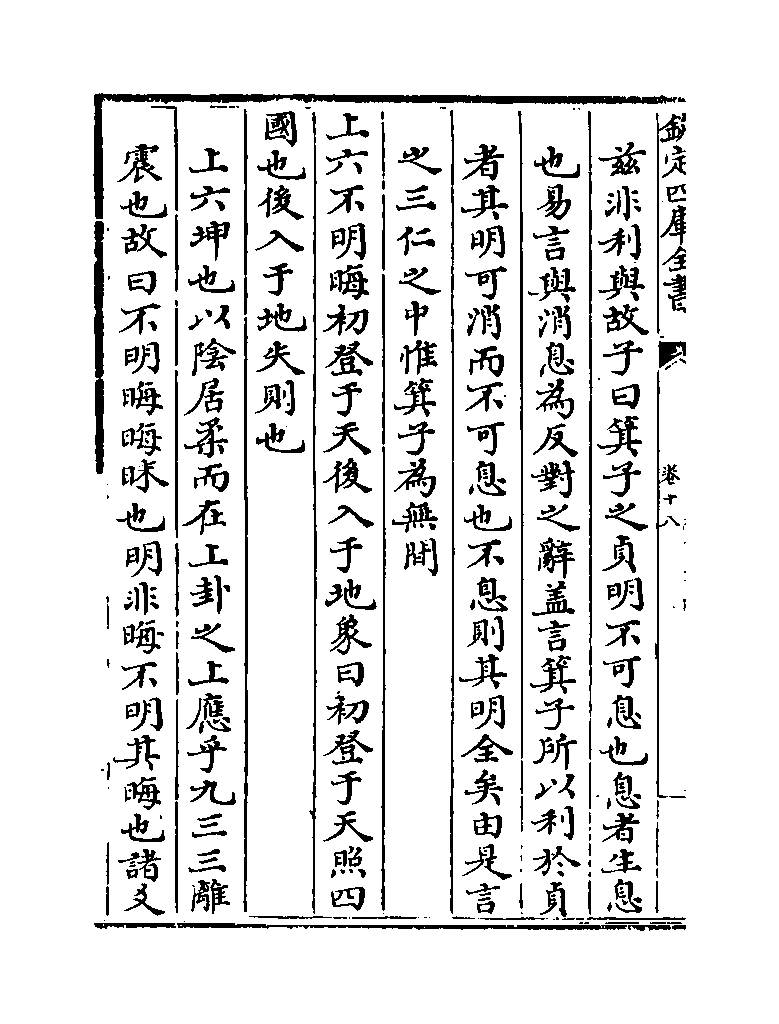 欽定四庫全書
卷十八
兹非利與故子曰箕子之貞明不可息也息者生息
也易言與消息為反對之辭盖言箕子所以利於貞
者其明可消而不可息也不息則其明全矣由是言
之三仁之中惟箕子為無間
上六不明晦初登于天後入于地象曰初登于天照四
國也後入于地失則也
上六坤也以陰居柔而在上卦之上應乎九三三離
震也故曰不明晦晦昧也明非晦不明其晦也諸爻